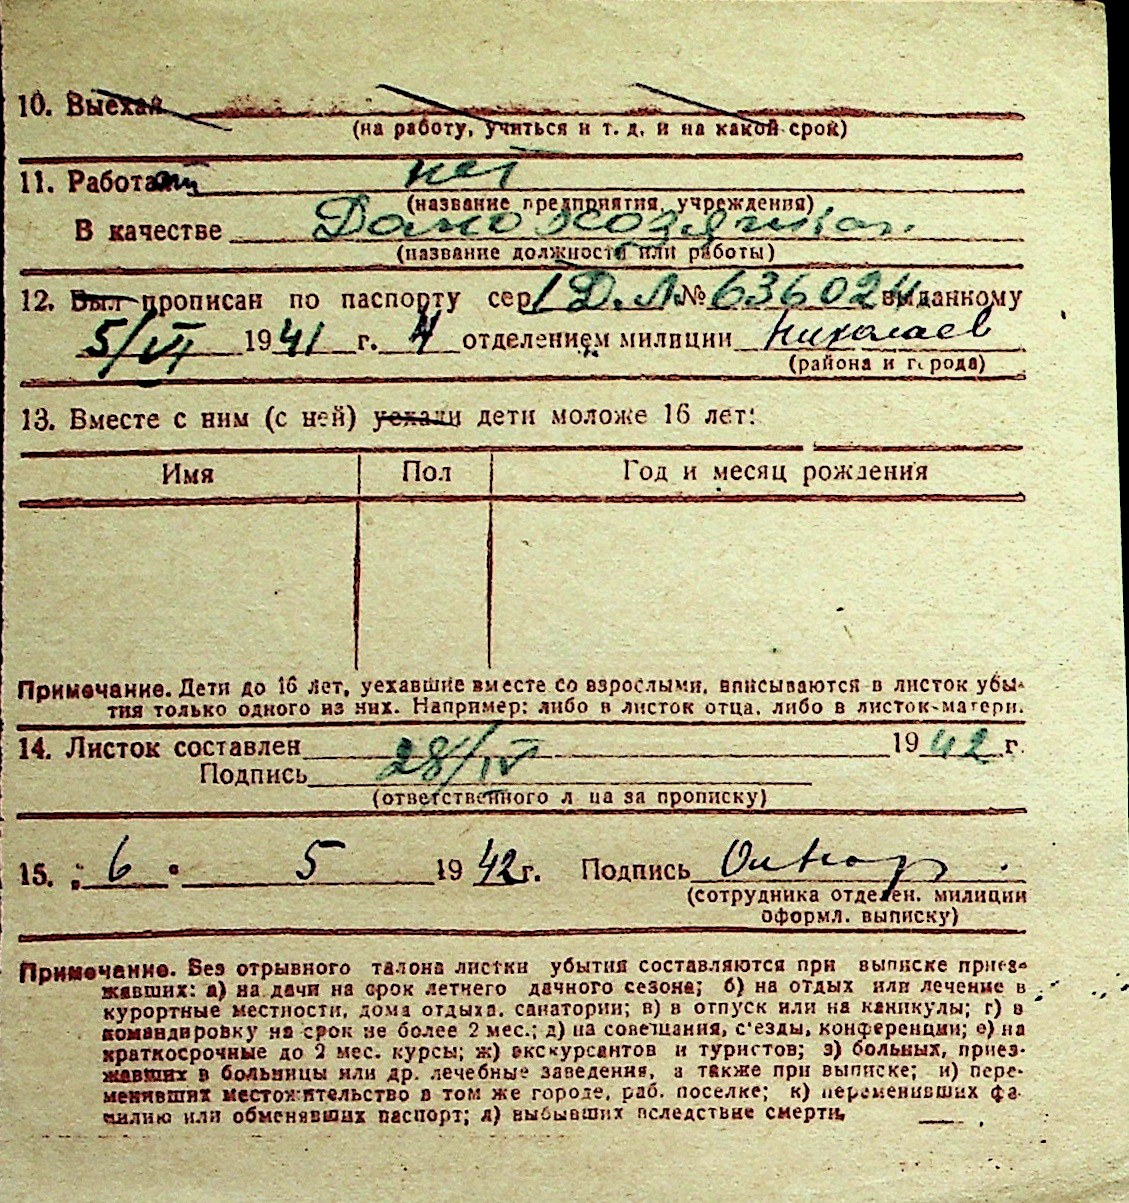 10. Выехал
(на работу, учиться и т. д. и на какой срок)
11. Работа нет
(название предприятия, учреждения)
В качестве Домохозяйка
(название должности или работы)
12. Был прописан по паспорту сер. 1 Д.Л. № 636024 выданному
5/VI 1941 г. 4 отделением милиции Николаев
(района и города)
13. Вместе с ним (с ней) уехали дети моложе 16 лет:
Имя Пол Год и месяц рождения
Примечание. Дети до 16 лет, уехавшие вместе со взрослыми, вписываются в листок убы-
тия только одного из них. Например: либо в листок отца, либо в листок-матери.
14. Листок составлен 28/IV 1942 г.
Подпись
(ответственного лица за прописку)
15. "6" 5 1942 г. Подпись
(сотрудника отделен. милиции
оформл. выписку)
Примечание. Без отрывного талона листки убытия составляются при выписке приез-
жавших: а) на дачи на срок летнего дачного сезона; б) на отдых или лечение в
курортные местности, дома отдыха, санатории; в) в отпуск или на каникулы; г) в
командировку на срок не более 2 мес.; д) на совещания, с'езды, конференции; е) на
краткосрочные до 2 мес. курсы; ж) экскурсантов и туристов; з) больных, приез-
жавших в больницы или др. лечебные заведения, а также при выписке; и) пере-
менивших местожительство в том же городе, раб. поселке; к) переменивших фа-
милию или обменявших паспорт; л) выбывших вследствие смерти.